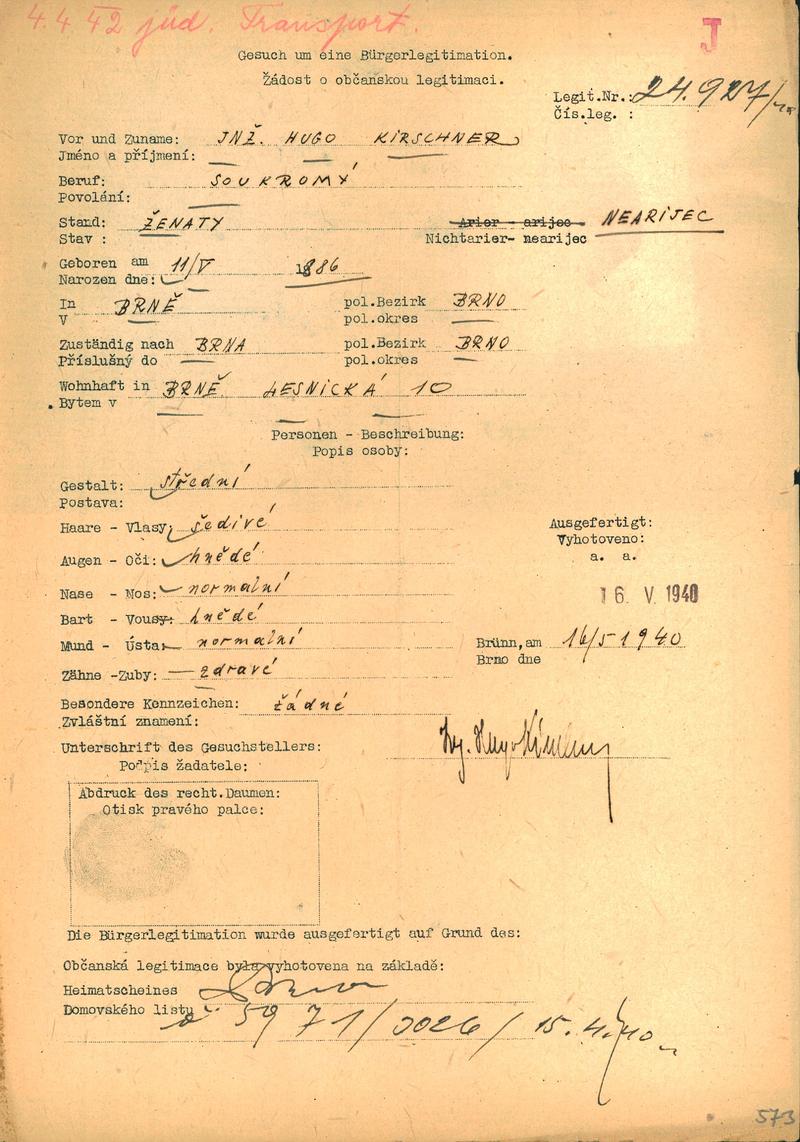 4.4 42 jüd. Transport.
J
Gesuch um eine Bürgerlegitimation.
Žádost o občanskou legitimaci.
Legit.Nr.: 24.927/
Čís.leg. :
Vor und Zuname: INŽ. HUGO KIRSCHNER
Jméno a příjmení:
Beruf: SOUKROMÝ
Povolání:
Stand: ŽENATY Arier - arijec NEARIJEC
Stav : Nichtarier- nearijec
Geboren am 11/V 1886
Narozen dne:
In BRNĚ pol.Bezirk BRNO
V pol.okres
Zuständig nach BRNA pol.Bezirk BRNO
Příslušný do pol.okres
Wohnhaft in BRNĚ LESNICKÁ 10
Bytem v
Personen - Beschreibung:
Popis osoby:
Gestalt: střední
Postava:
Haare - Vlasy: šedivé
Ausgefertigt:
Vyhotoveno:
a. a.
Augen - Oči: hnědé
Nase - Nos: normalní
16. V. 1940
Bart - Vousy: hnědé
Mund - Ústa: normalní
Brünn,am 16/5 1940
Brno dne
Zähne -Zuby: zdravé
Besondere Kennzeichen: žádné
Zvláštní znamení:
Unterschrift des Gesuchstellers: Ing. Hugo Kirschner
Podpis žadatele:
Abdruck des recht.Daumen:
Otisk pravého palce:
Die Bürgerlegitimation wurde ausgefertigt auf Grund des:
Občanská legitimace byla vyhotovena na základě:
Heimatscheines
Domovského listu č 5971/0026/ 15.4.40
573